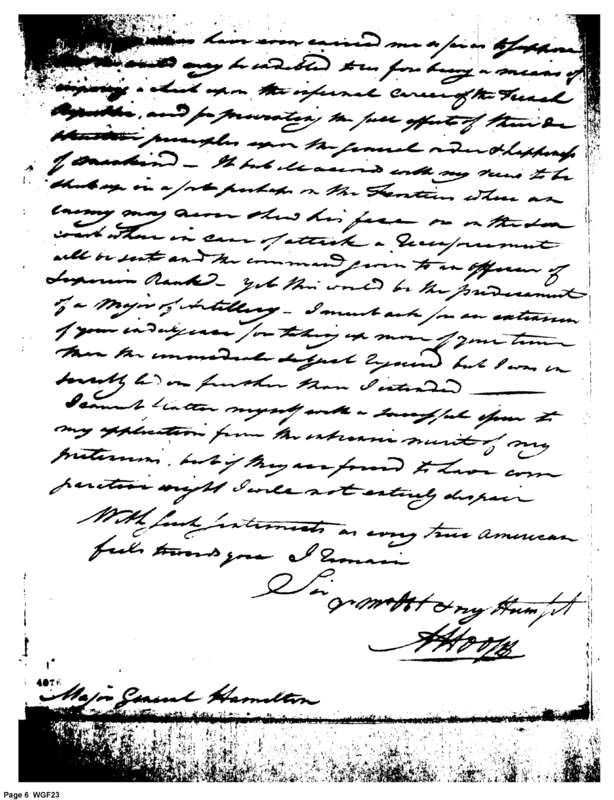 have ever carried me so far as to suppose
may be indebted to us for being a means of
a check upon the infernal career of the French
Republic, and for preventing the full effects of their de
principles upon the general order & happiness
of mankind — It but ill accords with my views to be
shut up in a fort perhaps on the Frontiers where an
enemy may never shew his face or on the Sea
coast where in case of attack a Reenforcement
will be sent and the command given to an officer of
Superior Rank — Yet this would be the predicament
of a Major of Artillery — I must ask for an extension
of your indulgence for taking up more of your time
than the immediate subject required but I was in
sensibly led on further than I intended ——
I cannot flatter myself with a successful issue to
my application from the intrinsic merit of my
pretensions, but if they are found to have com
parative weight I will not entirely despair
With such sentiments as every true American
feels towards you I remain
Sir
Yr Most Obt & very Humb St
A Hoops
4076
Major General Hamilton
Page 6 WGF23